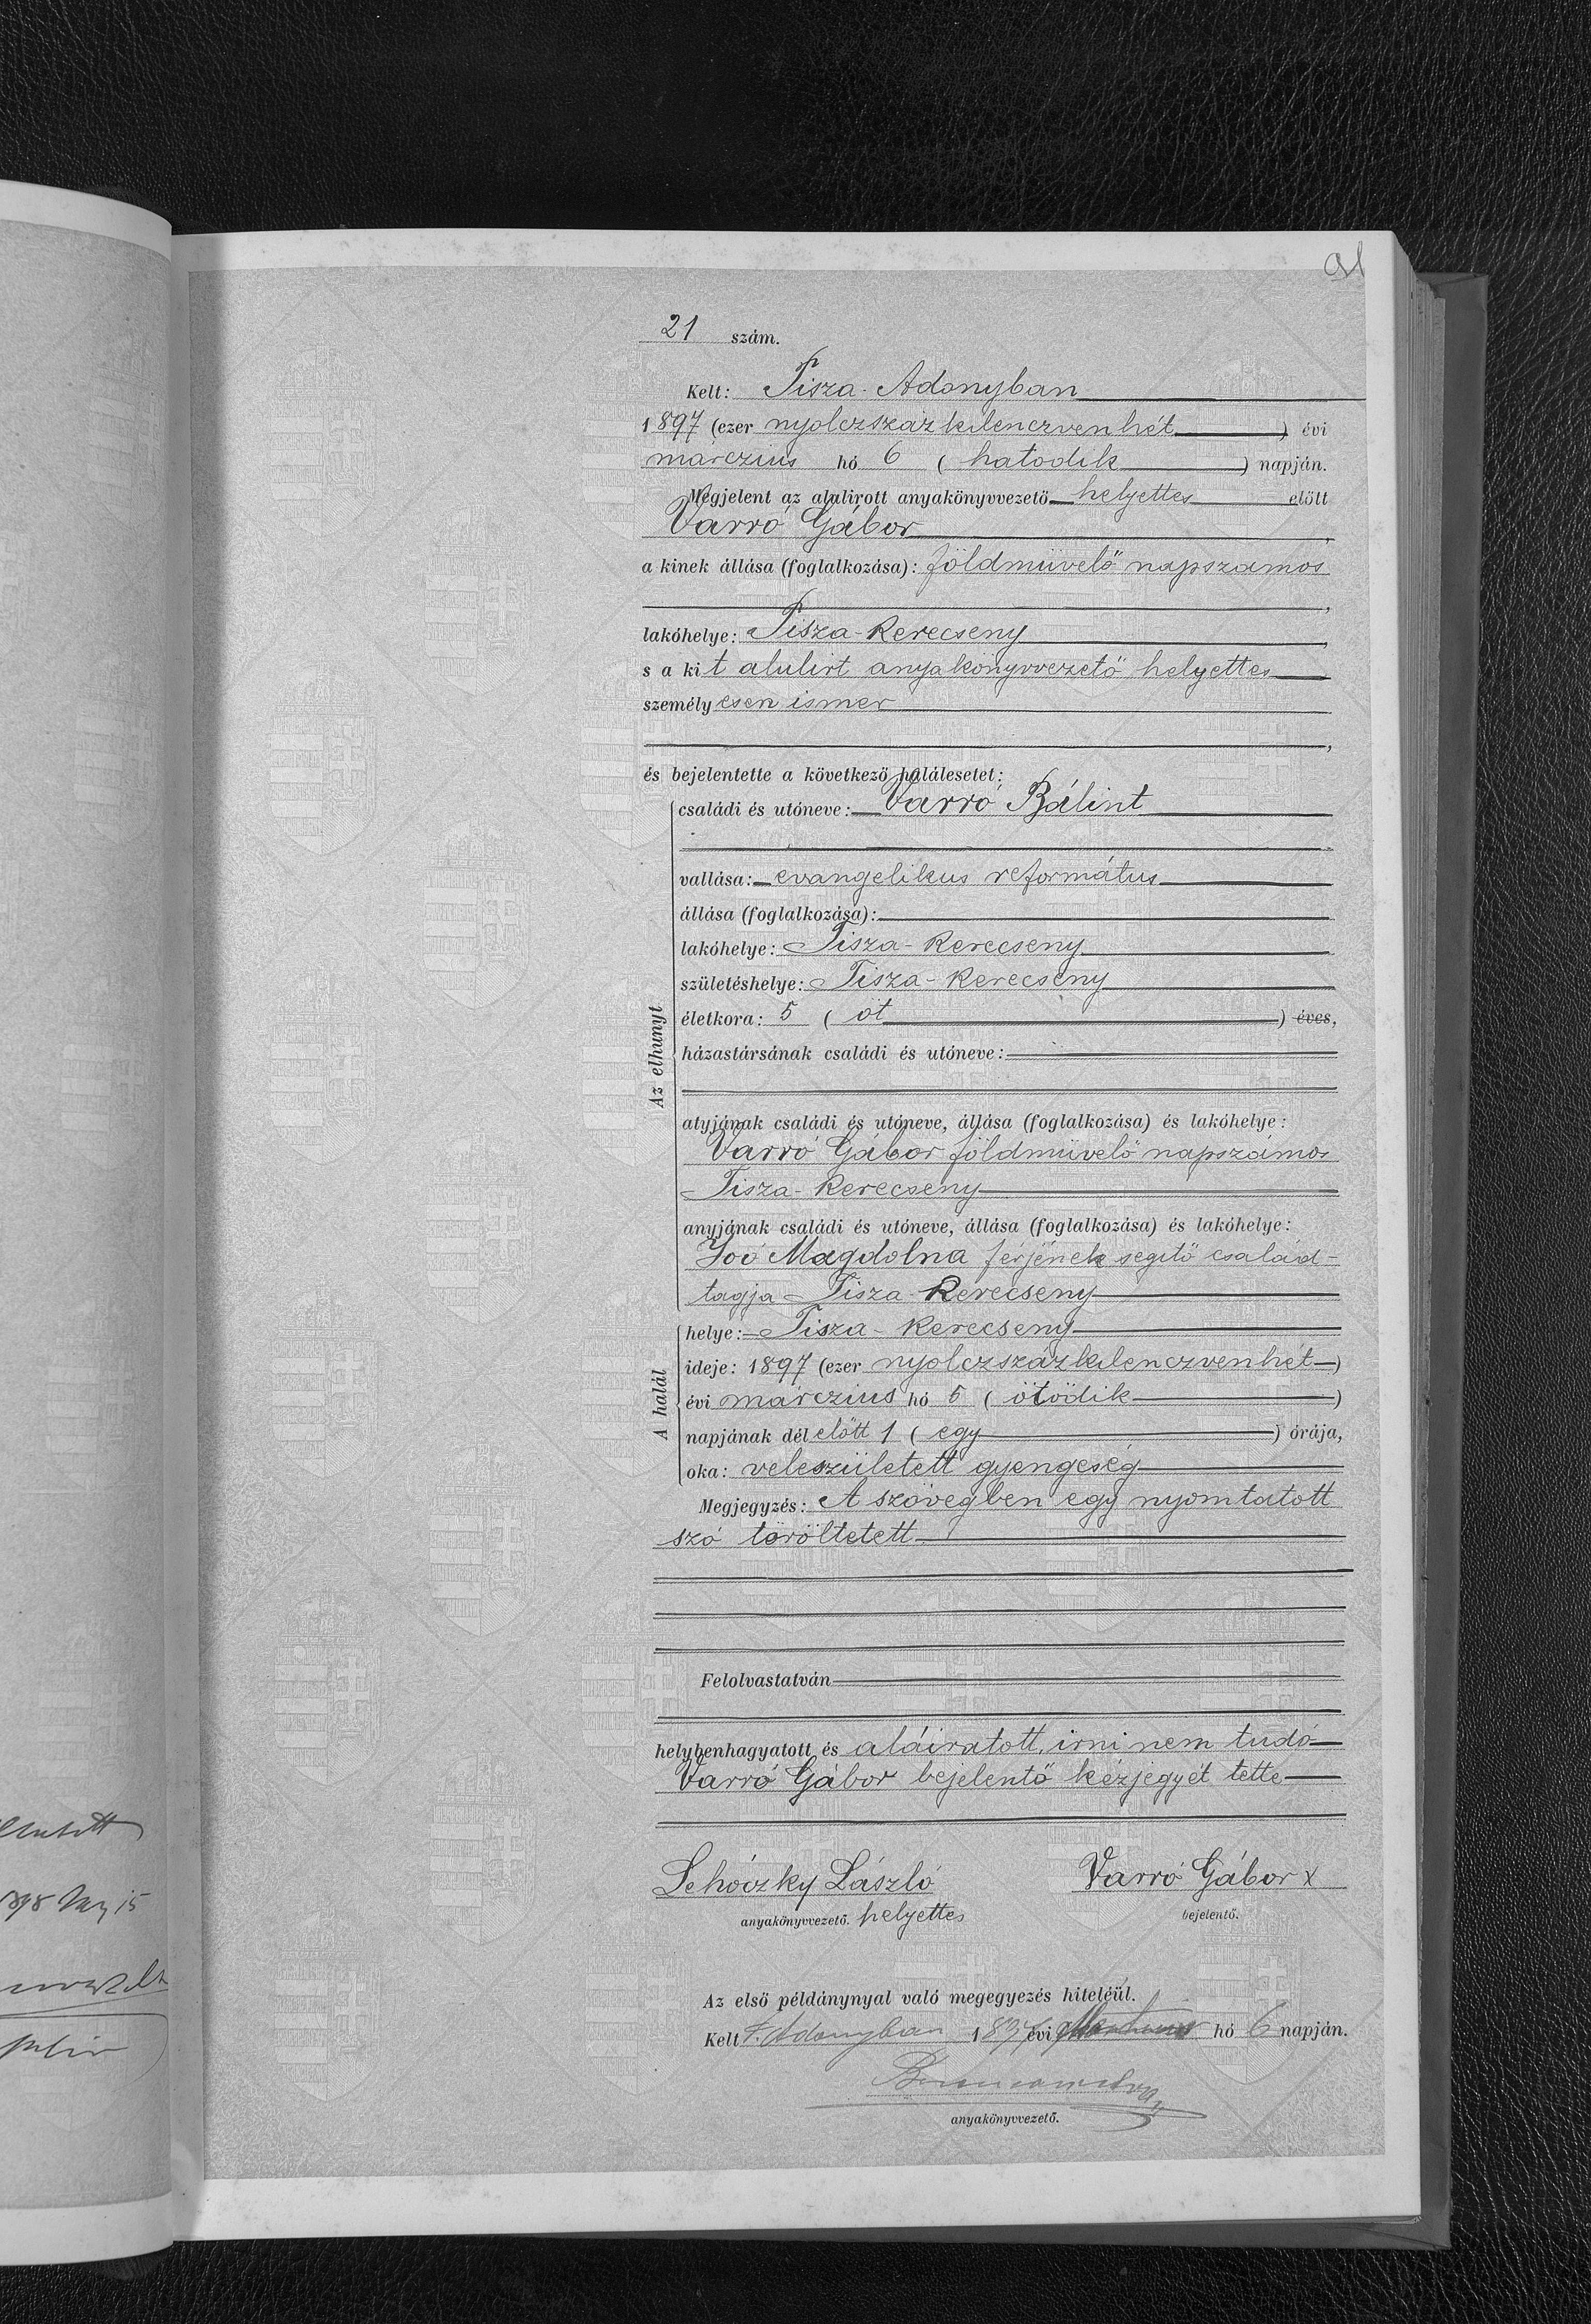 91
21 szám.
Kelt: Tisza-Adonyban
1897 (ezer nyolczszázkilenczvenhét) évi
márczius hó 6 (hatodik) napján.
Megjelent az alulirott anyakönyvvezető helyettes előtt
Varró Gábor,
a kinek állása (foglalkozása): földmüvelő napszámos
,
lakóhelye: Tisza-Kerecseny,
s a kit alulirt anyakönyvvezető helyettes
személyesen ismer
,
és bejelentette a következő halálesetet:
Az elhunyt
családi és utóneve: Varró Bálint
vallása: evangelikus református
állása (foglalkozása):
lakóhelye: Tisza-Kerecseny
születéshelye: Tisza-Kerecseny
életkora: 5 (öt) éves,
házastársának családi és utóneve:
atyjának családi és utóneve, állása (foglalkozása) és lakóhelye:
Varró Gábor földmüvelő napszámos
Tisza-Kerecseny
anyjának családi és utóneve, állása (foglalkozása) és lakóhelye:
Joó Magdolna férjének segitő család-
tagja Tisza-Kerecseny
A halál
helye: Tisza-Kerecseny
ideje: 1897 (ezer nyolczszázkilenczvenhét)
évi márczius hó 5 (ötödik)
napjának dél előtt 1 (egy) órája,
oka: veleszületett gyengeség
Megjegyzés: A szövegben egy nyomtatott
szó töröltetett
Felolvastatván
helybenhagyatott és aláiratott, irni nem tudó
Varró Gábor bejelentő kézjegyét tette
Lehóczky László
Varró Gábor x
anyakönyvvezető. helyettes
bejelentő.
Az első példánynyal való megegyezés hiteléül.
Kelt T. Adonyban 1897 évi hó 6 napján.
anyakönyvvezető.